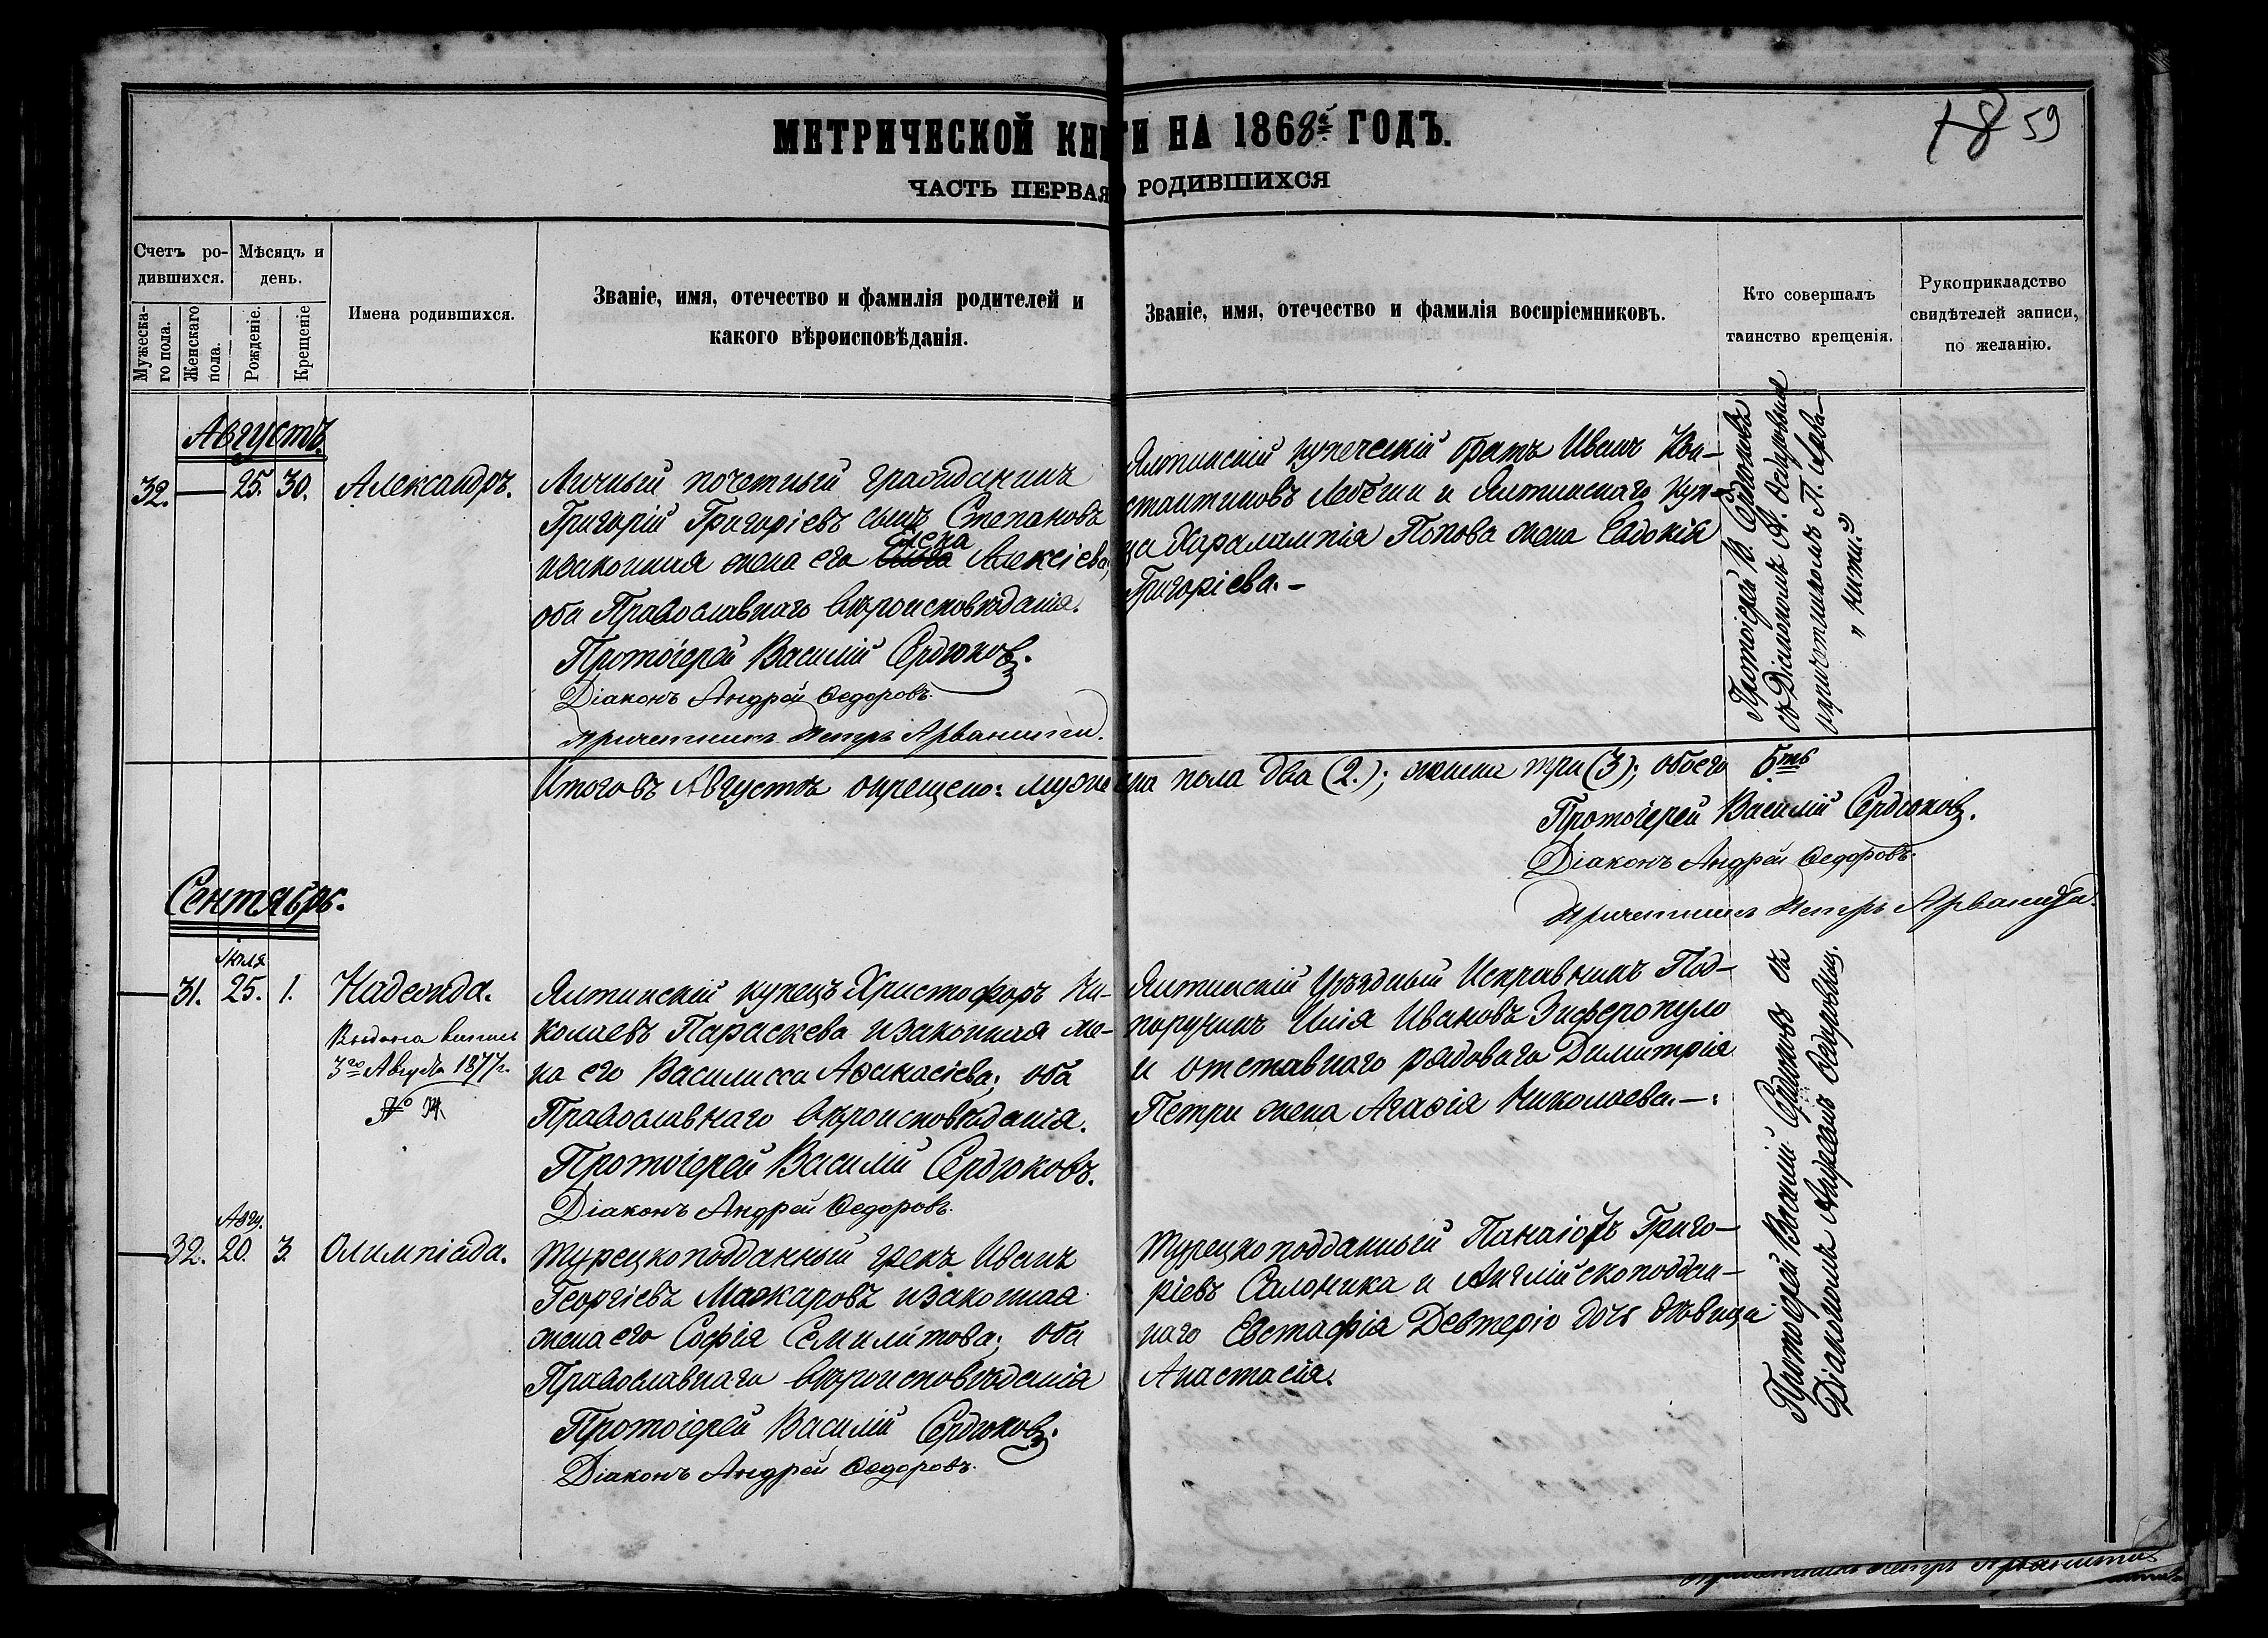 МЕТРИЧЕСКОЙ КНИГИ НА 1868й ГОДЪ.
59
ЧАСТЬ ПЕРВАЯ О РОДИВШИХСЯ
Счетъ ро-
дившихся.
Мужеска-
го пола.
Женскаго
пола.
Мѣсяцъ и
день.
Рожденіе.
Крещеніе
Имена родившихся.
Званіе, имя, отечество и фамилія родителей и
какого вѣроисповѣданія.
Званіе, имя, отечество и фамилія воспріемниковъ.
Кто совершалъ
таинство крещенія.
Рукоприкладство
свидѣтелей записи,
по желанію.
Августъ.
32. — 25. 30. Александръ.
Личный почетный гражданинъ
Григорій Григоріевъ сынъ Степановъ
и законная жена его Алексіева,
оба Православнаго вѣроисповѣданія.
Протоіерей Василій Сердюковъ.
Діаконъ Андрей Ѳедоровъ.
Причетникъ Петръ Арванити.
Ялтинскій купеческій братъ Иванъ Кон-
стантиновъ и Ялтинскаго куп-
ца Харалампія Попова жена Евдокія
Григоріева.—
Протоіерей В. Сердюковъ
съ Діакономъ А. Ѳедоровымъ
и причетникомъ П. Арва-
нити.
Итого въ Августѣ окрещено: мужеска пола два (2.); женска три (3); обоего 5.ть
Протоіерей Василій Сердюковъ.
Діаконъ Андрей Ѳедоровъ.
Причетникъ Петръ Арванити.
Сентябрь.
Іюля
— 31. 25. 1. Надежда.
Выдана
3го Августа 1877г.
№
Ялтинскій купецъ Христофоръ Ни-
колаевъ Параскева и законная же-
на его Василисса Аѳанасіева; оба
Православнаго вѣроисповѣданія.
Протоіерей Василій Сердюковъ.
Діаконъ Андрей Ѳедоровъ.
Ялтинскій Уѣздный Исправникъ Под-
поручикъ Илія Ивановъ Зиферопуло
и отставнаго рядоваго Димитрія
Петри жена Агаѳія Николаева.—.
Авгу.
— 32. 20. 3. Олимпіада.
Турецкоподданный грекъ Иванъ
Георгіевъ Мажаровъ и законная
жена его Софія Семилитова; оба
Православнаго вѣроисповѣданія
Протоіерей Василій Сердюковъ.
Діаконъ Андрей Ѳедоровъ.
Турецкоподданный Панаіотъ Григо-
ріевъ Салоника и Англійскоподдан-
наго Евстафія Девтеріо дочь дѣвица
Анастасія.
Протоіерей Василій Сердюковъ съ
Діакономъ Андреемъ Ѳедоровымъ.
Причетникъ Петръ Арванити